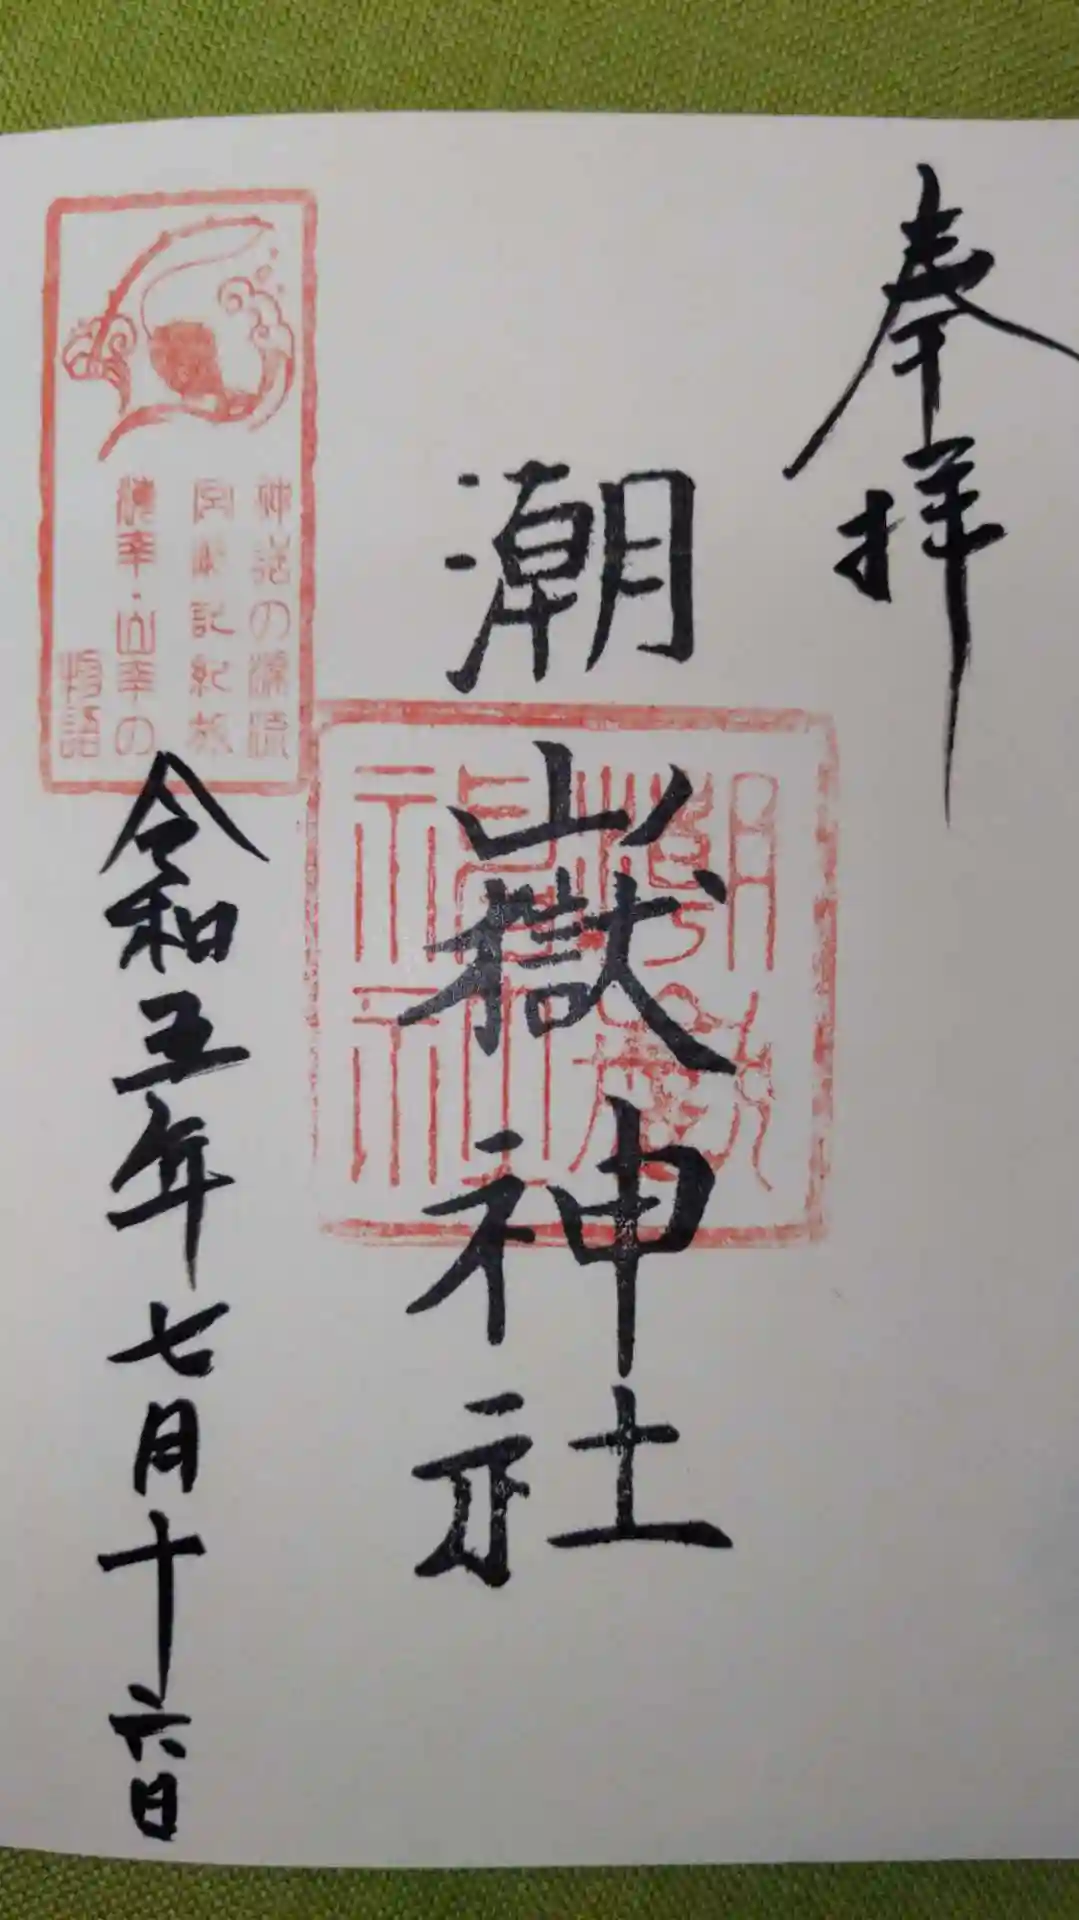 奉拝
潮嶽神社
神話の源流
宮崎記紀旅
海幸・山幸の
物語
令和五年七月十六日